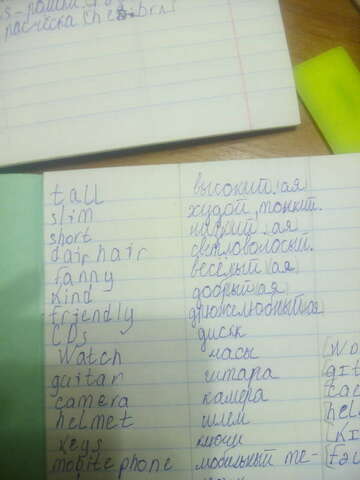 расческа (he
tall высокий(ая)
slim худой, тонкий.
short низкий, ая
fair hair светловолосый.
fanny весёлый (ая)
kind добрый(ая)
friendly дружелюбный(ая)
CDs диск
Watch часы
guitar гитара
camera камера
helmet шлем
keys ключи
mobile phone мобильный те-